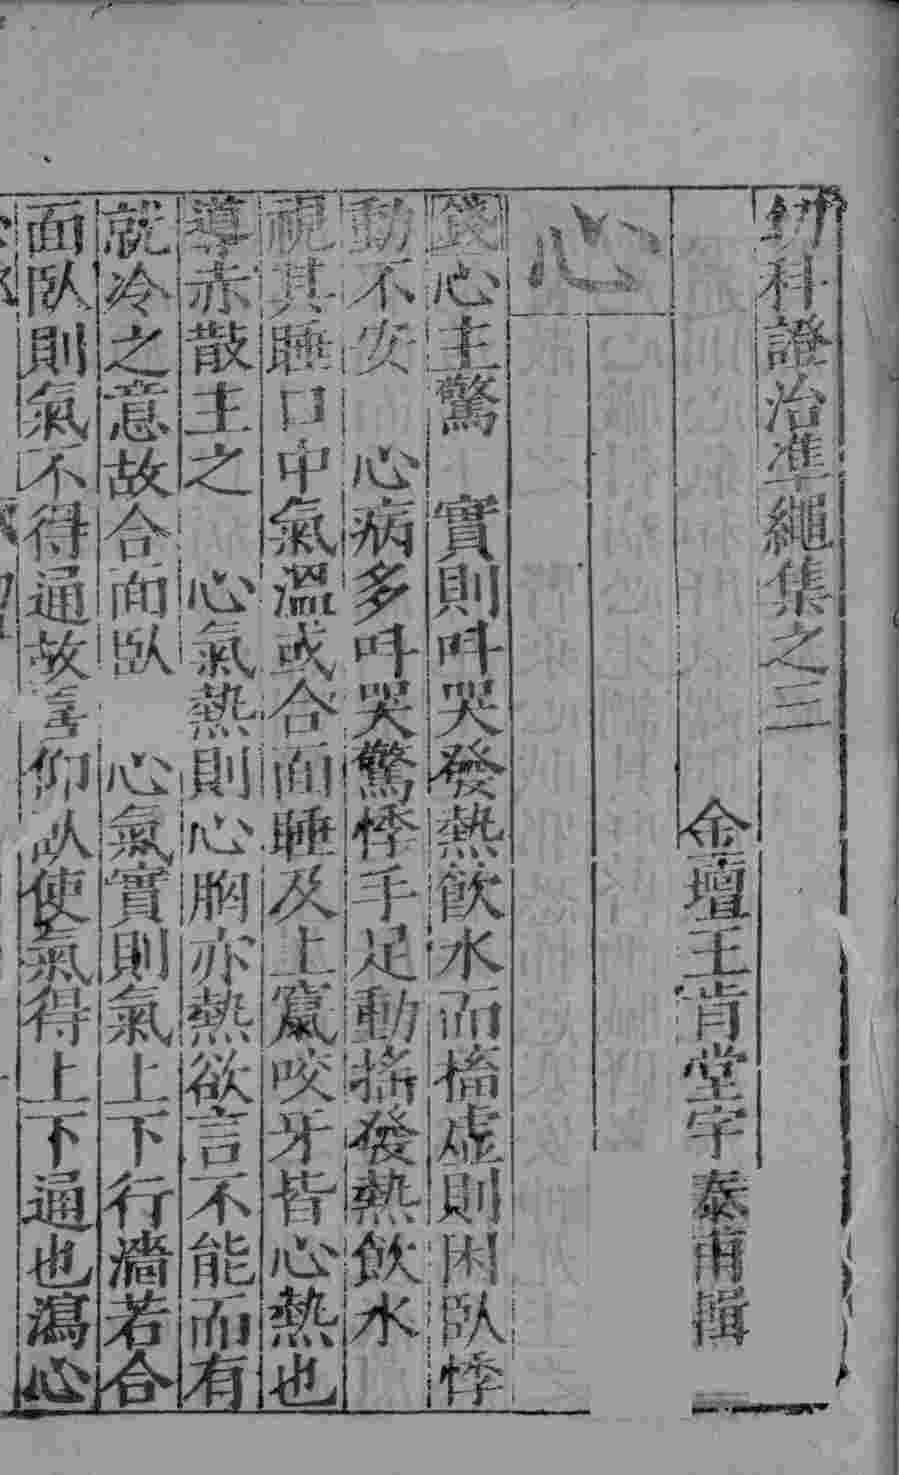 幼科證治準繩集之三
金壇王肯堂字泰甫輯
心
錢心主驚　實則呌哭發熱飲水而搐虛則困臥悸
動不安　心病多呌哭驚悸手足動搖發熱飲水
視其睡口中氣溫或合面睡及上竄咬牙皆心熱也
導赤散主之　心氣熱則心胸亦熱欲言不能而有
就冷之意故合面臥　心氣實則氣上下行濇若合
面臥則氣不得通故喜仰臥使氣得上下通也瀉心